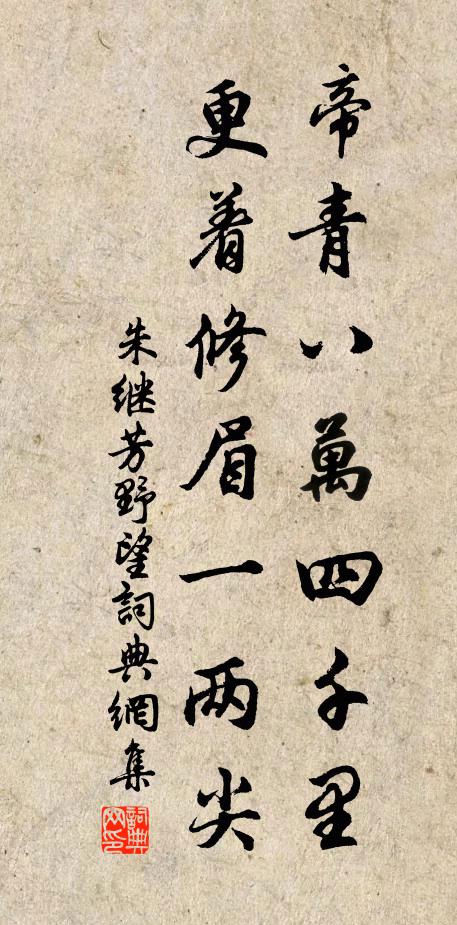 帝青八萬四千里
更着修眉一两尖
朱继芳野望詞典網集
詞典网印